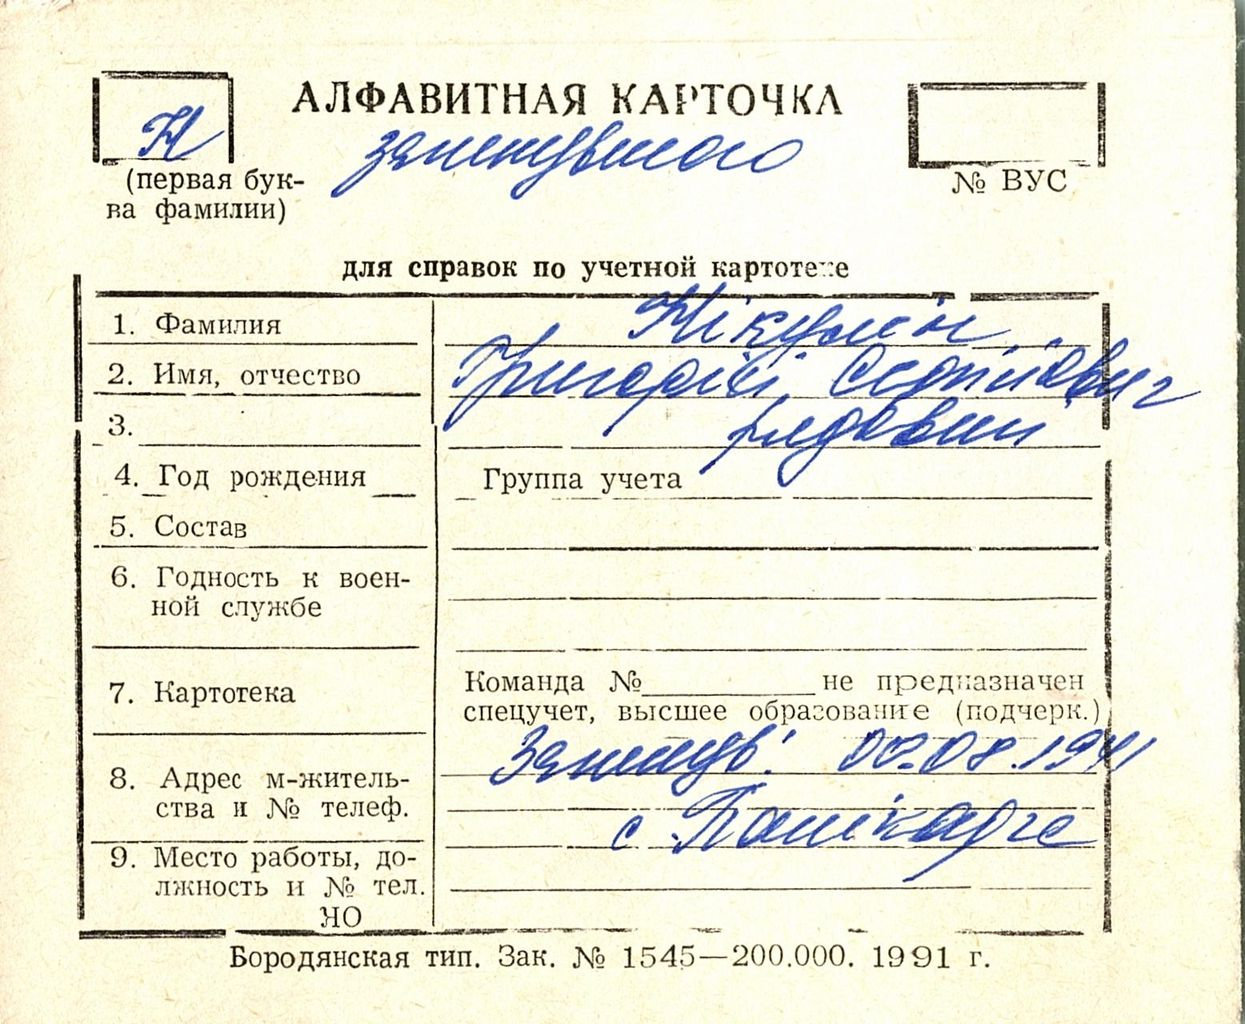 АЛФАВИТНАЯ КАРТОЧКА
Н
загинувшого
(первая бук-
ва фамилии)
№ ВУС
для справок по учетной картотеке
1. Фамилия
Нікулін
2. Имя, отчество
Григорій
3.
рядовий
4. Год рождения
Группа учета
5. Состав
6. Годность к воен-
ной службе
7. Картотека
Команда № не предназначен
спецучет, высшее образование (подчерк.)
8. Адрес м-житель-
ства и № телеф.
00.08.1941
с.
9. Место работы, до-
лжность и № тел.
ЧО
Бородянская тип. Зак. № 1545—200.000. 1991 г.